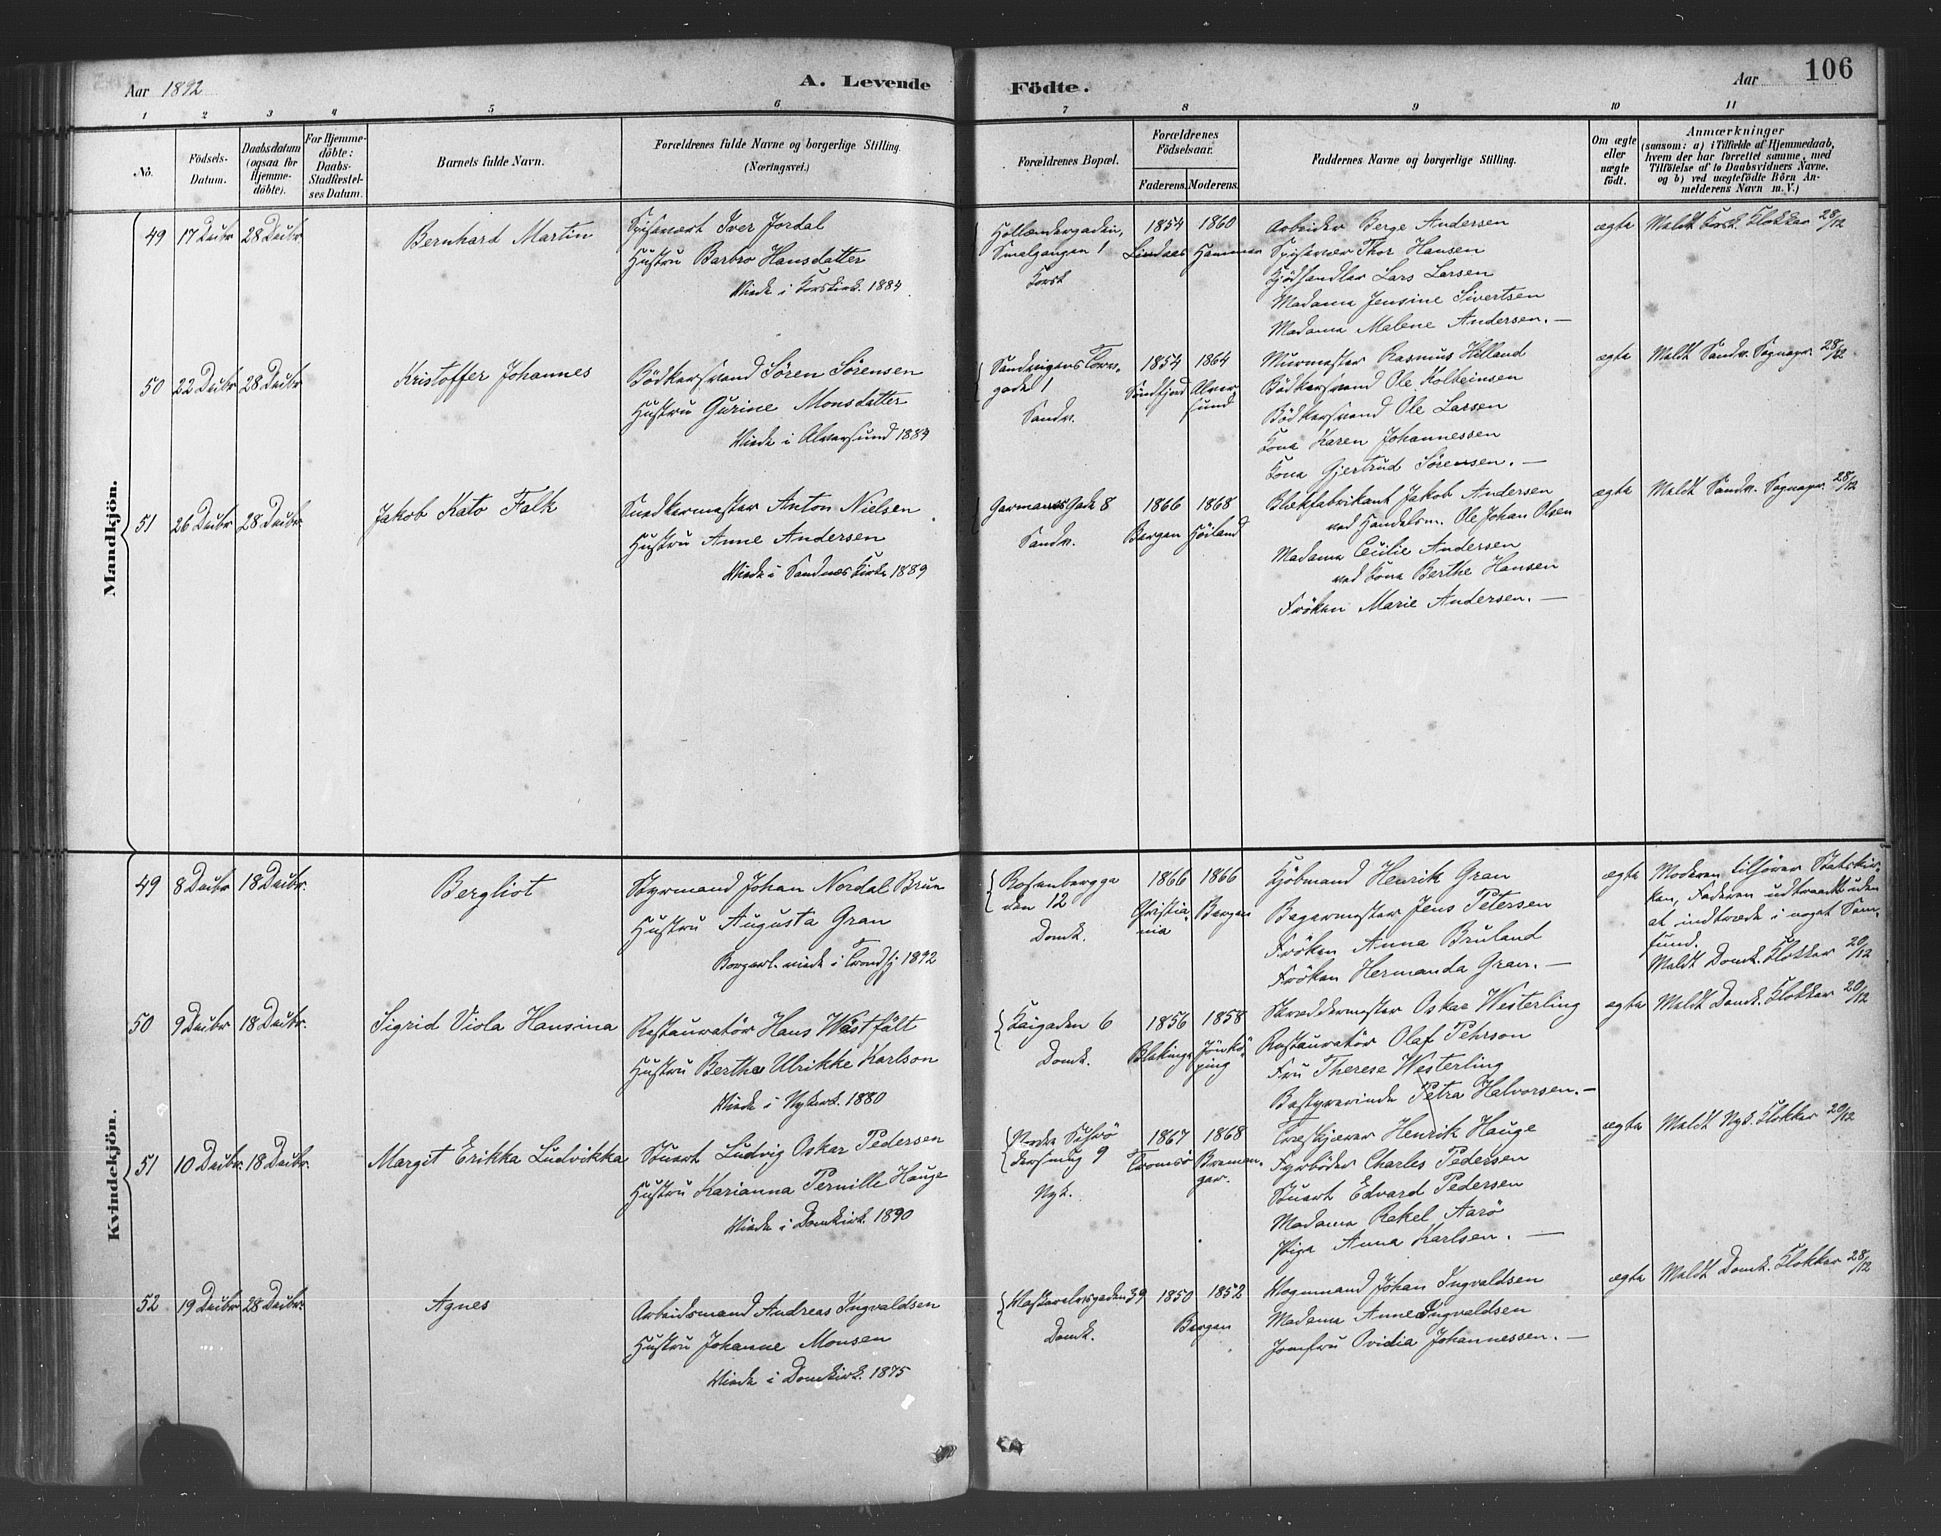 Aar 1892
A. Levende
Födte.
Aar
106
1 2 3 4 5 6 7 8 9 10 11
No.
Födsels-Datum.
Daabsdatum (ogsaa for Hjemme-döbte).
For Hjemme-döbte: Daabs-Stadfæstel-ses Datum.
Barnets fulde Navn.
Forældrenes fulde Navne og borgerlige Stilling. (Næringsvei.)
Forældrenes Bopæl.
Forældrenes Födselsaar.
Faderens. Moderens.
Faddernes Navne og borgerlige Stilling.
Om ægte eller uægte födt.
Anmærkninger
(saasom: a) i Tilfælde af Hjemmedaab, hvem der har forrettet samme, med Tilföielse af to Daabsvidners Navne. og b) ved uægtefödte Börn An-melderens Navn m. V.)
Mandkjön.
49 17 Decbr 28 Decbr
Bernhard Martin
Spisevært Iver Jordal
Hustru Barbro Hansdatter
Viede i Korskirk. 1884
Hollændergaden,
Smalgangen 1
Korsk
1854 1860
Lindaas Hammer
Arbeider Berge Andersen
Spisevær Thor Hansen
Kjödhandler Lars Larsen
Madame Jensine Sivertsen
Madame Malene Andersen. —
ægte
Meldt Korsk. Klokker 28/12
50 22 Decbr 28 Decbr
Kristoffer Johannes
Bödkersvend Sören Sörensen
Hustru Gurine Monsdatter
Viede i Alversund 1884
Sandvigens Torv-
gade 1
Sandv.
1854 1864
Söndfjord Alver-
sund
Murmester Rasmus Helland
Bödkersvend Ole Kolbeinsen
Bödkersvend Ole Larsen
Kone Karen Johannessen
Kone Gjertrud Sörensen. —
ægte
Meldt Sandv. Sognepr. 28/12
51 26 Decbr 28 Decbr
Jakob Kato Falk
Snedkermester Anton Nielsen
Hustru Anne Andersen
Viede i Sandnes Kirke 1889
Germans Gade 8
Sandv.
1866 1868
Bergen Höiland
Blækfabrikant Jakob Andersen
ved Handelsm. Ole Johan Olsen
Madame Cecilie Andersen
ved Kone Berthe Hansen
Fröken Marie Andersen. —
ægte
Meldt Sandv. Sognepr. 28/12
Kvindekjön.
49 8 Decbr 18 Decbr.
Bergliot
Styrmand Johan Nordal Brun
Hustru Augusta Gran
Borgerl. viede i Trondhj 1892
Rosenbergga
den 12
Domk.
1866 1866
Christia-
nia Bergen
Kjöbmand Henrik Gran
Bagermester Jens Petersen
Fröken Anna Bruland
Fröken Hermanda Gran. —
ægte
Moderen tilhörer Statskir-
ken, Faderen udtraadt uden
at indtræde i noget Sam-
fund.
Meldt Domk. Klokker 20/12
50 9 Decbr 18 Decbr.
Sigrid Viola Hansina
Restauratör Hans Westfält
Hustru Berthe Ulrikke Karlson
Viede i Nykirk. 1880
Kaigaden 6
Domk.
1856 1858
Blekinge Jönkö-
ping
Skræddermester Oskar Westerling
Restauratör Olaf Pehrson
Fru Therese Westerling
Bestyrerinde Petra Halvorsen. —
ægte
Meldt Domk. Klokker 20/12
51 10 Decbr 18 Decbr.
Margit Erikka Ludvikka
Stuert Ludvig Oskar Pedersen
Hustru Karianna Pernille Hauge
Viede i Domkirk. 1890
Nykk.
1867 1868
Tromsö Breman-
ger.
Træskjærer Henrik Hauge
Fyrböder Charles Pedersen
Stuert Edvard Pedersen
Madame Rakel Aarö
Pige Anna Karlsen. —
ægte
Meldt Nyk. Klokker 20/12
52 19 Decbr 28 Decbr.
Agnes
Arbeidsmand Andreas Ingvaldsen
Hustru Johanne Monsen
Viede i Domkirk. 1875
39
Domk.
1850 1852
Bergen
Vognmand Johan Ingvaldsen
Madame Anne Ingvaldsen
Jomfru Ovidia Johannessen. —
ægte
Meldt Domk. Klokker 28/12